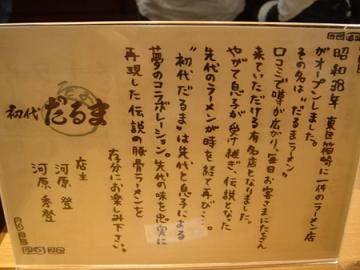 昭和38年 東区箱崎に一件のラーメン店
がオープンしました。
その名は"だるまラーメン"
口コミで噂が広がり、毎日お客さまにたくさん
来ていただける有名店となりました。
やがて息子が受け継ぎ、伝説となった
先代のラーメンが時を経て再び…。
"初代だるま"は先代と息子による
夢のコラボレーション。先代の味を忠実に
再現した伝説の豚骨ラーメンを
存分にお楽しみ下さい。
店主
河原 登
河原 秀登
初代 だるま